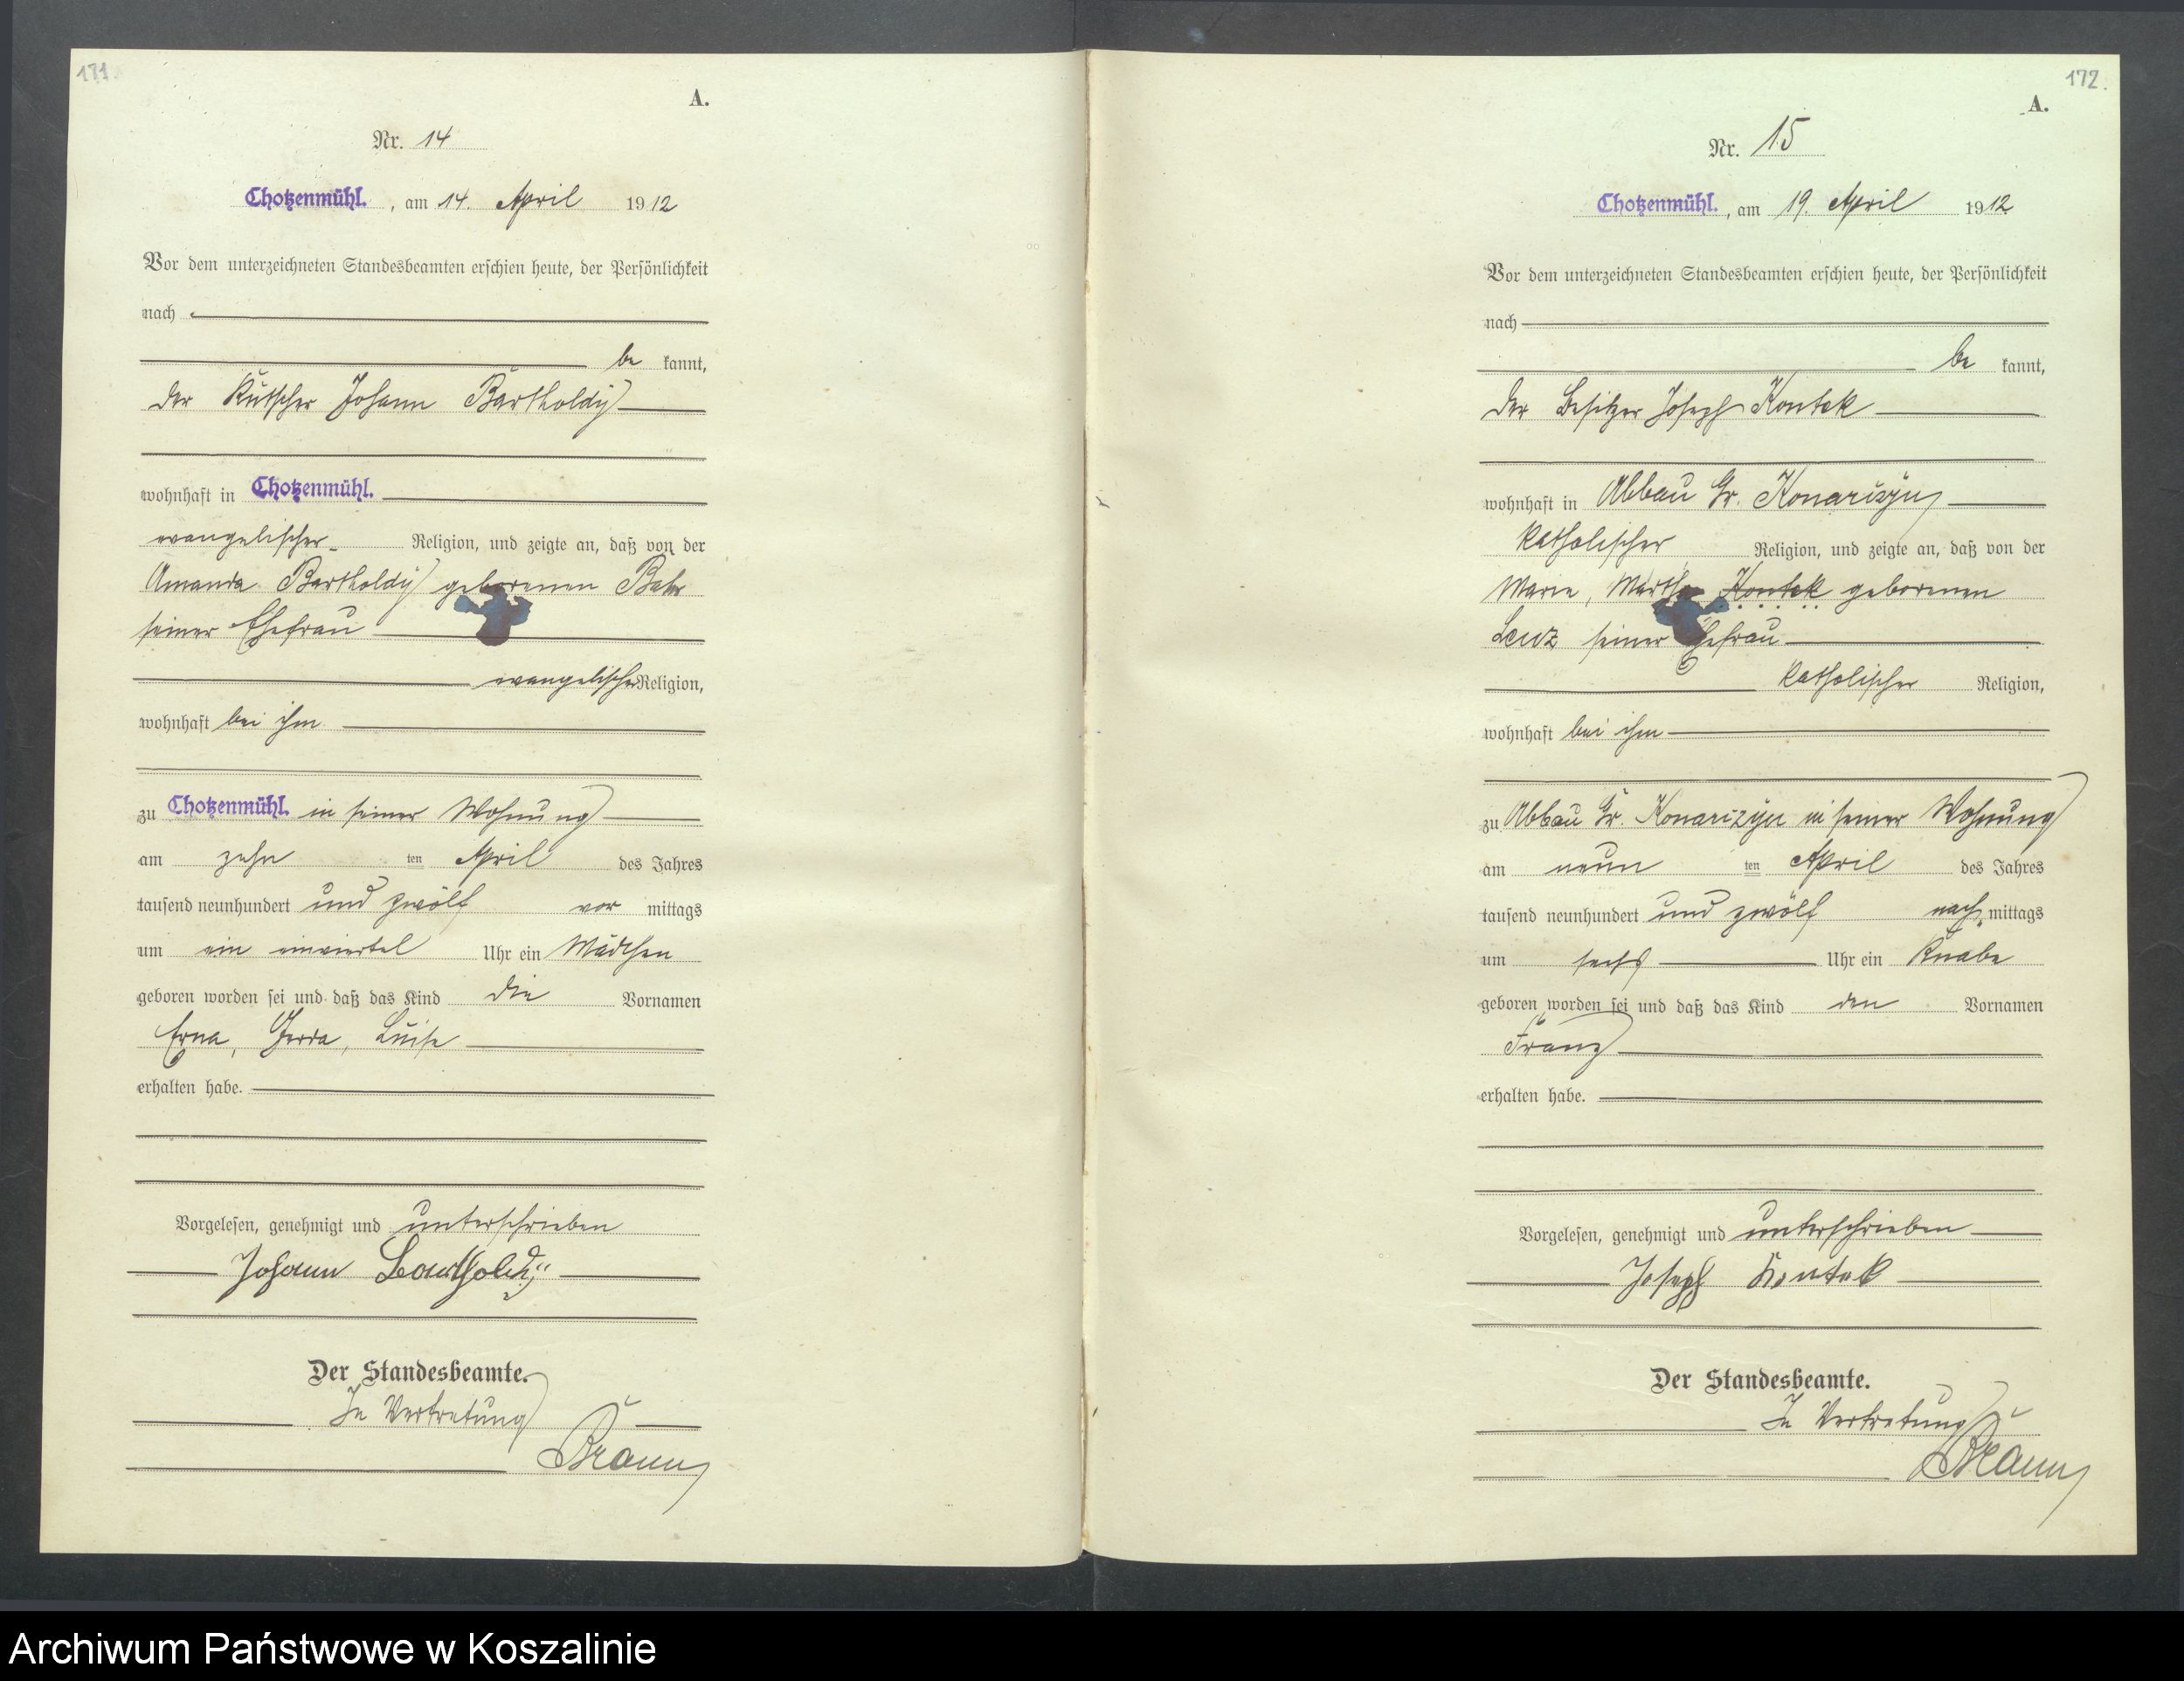 171.
A.
Nr. 14
Chotzenmühl., am 14. April 1912
Vor dem unterzeichneten Standesbeamten erschien heute, der Persönlichkeit
nach
be kannt,
der Kutscher Johann Bartholdy
wohnhaft in Chotzenmühl.
evangelischer Religion, und zeigte an, daß von der
Amanda Bartholdy geborenen Behr
seiner Ehefrau
evangelischer Religion,
wohnhaft bei ihm
zu Chotzenmühl. in seiner Wohnung
am zehn ten April des Jahres
tausend neunhundert und zwölf vor mittags
um ein einviertel Uhr ein Mädchen
geboren worden sei und daß das Kind die Vornamen
Erna, Gerda, Luise
erhalten habe.
Vorgelesen, genehmigt und unterschrieben
Johann Bartholdÿ
Der Standesbeamte.
In Vertretung
Braun
172.
A.
Nr. 15
Chotzenmühl., am 19. April 1912
Vor dem unterzeichneten Standesbeamten erschien heute, der Persönlichkeit
nach
be kannt,
der Besitzer Joseph Kontek
wohnhaft in Abbau Gr. Konarczyn
katholischer Religion, und zeigte an, daß von der
Maria, Martha Kontek geborenen
seiner Ehefrau
katholischer Religion,
wohnhaft bei ihm
zu Abbau Gr. Konarczyn in seiner Wohnung
am neun ten April des Jahres
tausend neunhundert und zwölf nach mittags
um sechs Uhr ein Knabe
geboren worden sei und daß das Kind den Vornamen
Franz
erhalten habe.
Vorgelesen, genehmigt und unterschrieben
Joseph Kontek
Der Standesbeamte.
In Vertretung
Braun
Archiwum Państwowe w Koszalinie